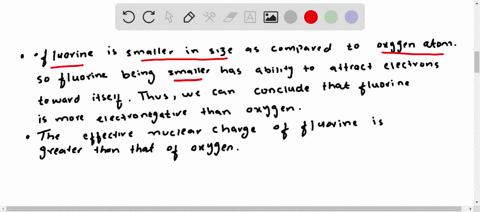 • Fluorine is smaller in size as compared to oxygen atom.
so fluorine being smaller has ability to attract electrons
toward itself. Thus, we can conclude that fluorine
is more electronegative than oxygen.
• The effective nuclear charge of fluorine is
greater than that of oxygen.